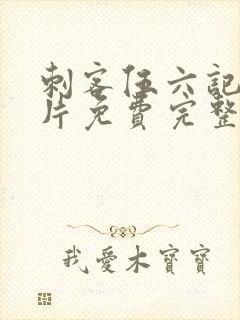 刺客伍六記
片免費完整
我愛木寶寶